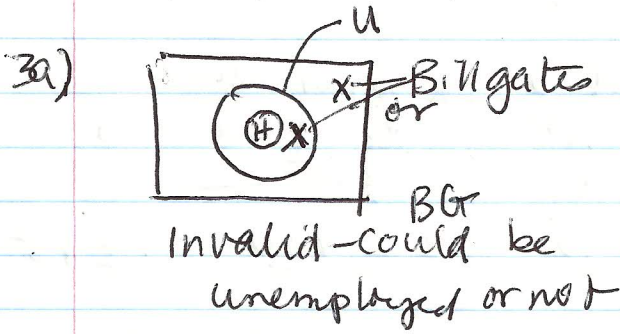 U
3a)
X Bill gates
H X or
BG
Invalid - could be
unemployed or not